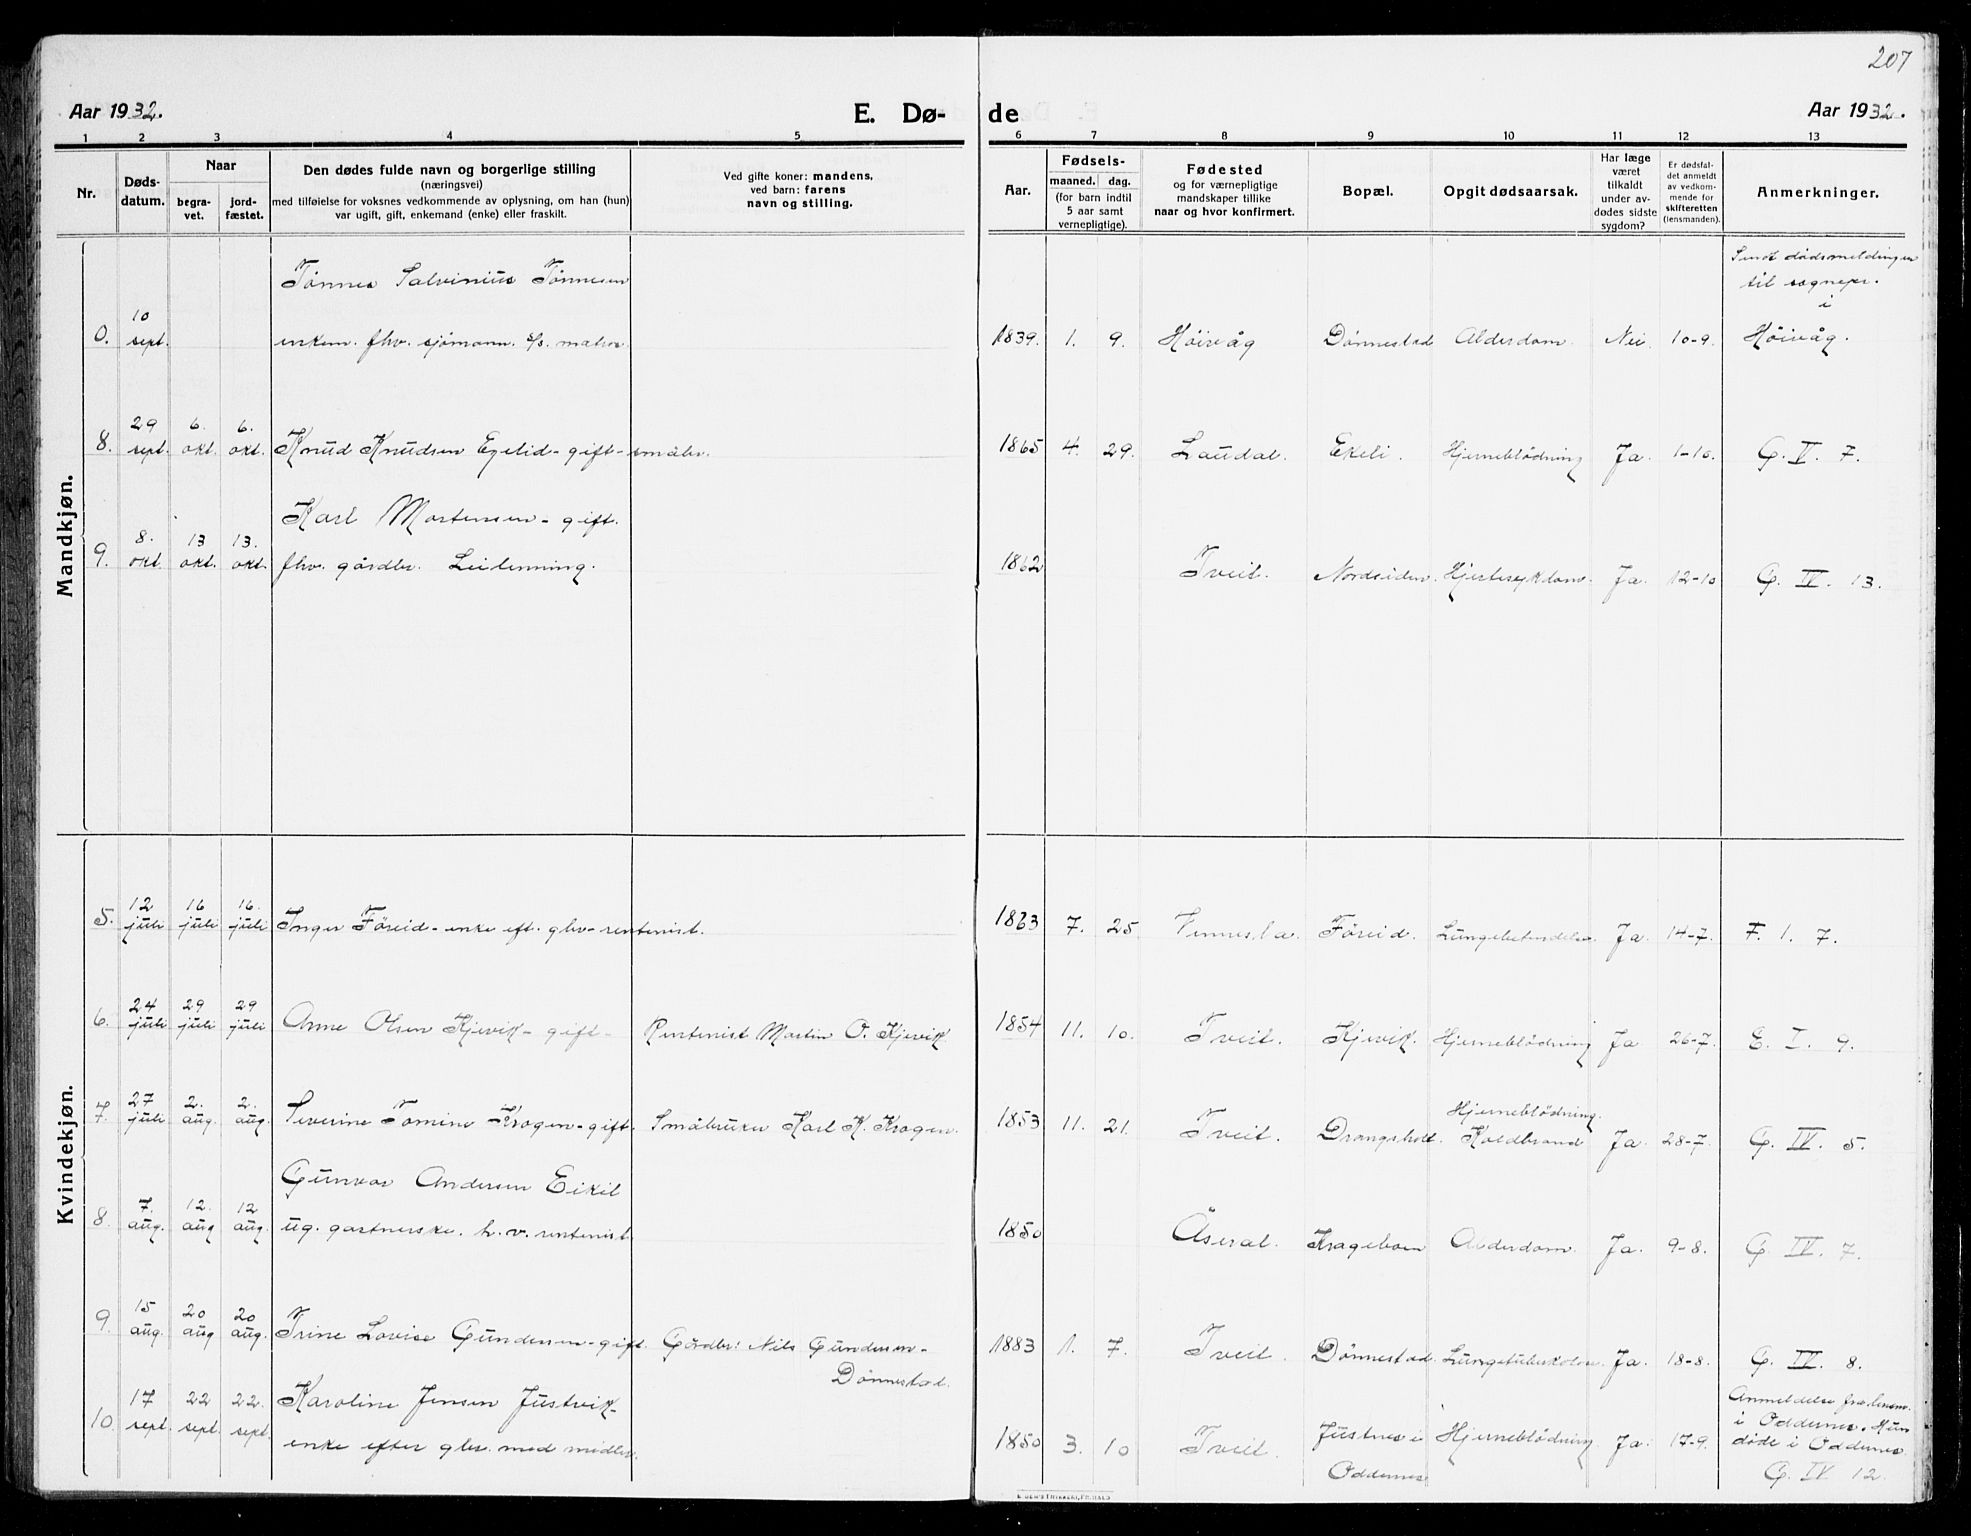 207
Aar 1932. E. Dø- de Aar 1932.
1 2 3 4 5 6 7 8 9 10 11 12 13
Nr.
Døds-
datum.
Naar
begra-
vet.
jord-
fæstet.
Den dødes fulde navn og borgerlige stilling
(næringsvei)
med tilføielse for voksnes vedkommende av oplysning, om han (hun)
var ugift, gift, enkemand (enke) eller fraskilt.
Ved gifte koner: mandens,
ved barn: farens
navn og stilling.
Aar.
Fødsels-
maaned. dag.
(for barn indtil
5 aar samt
vernepligtige).
Fødested
og for værnepligtige
mandskaper tillike
naar og hvor konfirmert.
Bopæl.
Opgit dødsaarsak.
Har læge
været
tilkaldt
under av-
dødes sidste
sygdom?
Er dødsfal-
det anmeldt
av vedkom-
mende for
skifteretten
(lensmanden).
Anmerkninger.
Mandkjøn.
Tønnes Salvinius Tønnesen
Sendt dødsmeldingen
til sognepr.
i
10
0. sept. enkem. fhv. sjømann. s/s. matros. 1839. 1. 9. Høivåg Dønnestad Alderdom. Nei. 10-9. Høivåg.
29 6. 6.
8. sept. okt. okt. Knud Knudsen Egelid - gift - småbr. 1865 4. 29. Laudal. Ekeli. Hjerneblødning Ja. 1-10. G. V. 7.
Karl Mortensen - gift.
8. 13 13.
9. okt. okt. okt. fhv. gårdbr. 1862 Tveit. Nordsiden. Hjertesykdom. Ja. 12-10 G. IV. 13.
Kvindekjøn.
12 16 16.
5. juli juli juli Inger Føreid - enke eft. glv - rentenist. 1863 7. 25. Vennesla. Føreid. Lungebetendelse. Ja. 14-7. F. 1. 7.
24 29 29
6. juli juli juli Anne Olsen Kjevik - gift - Rentenist Martin O. Kjevik 1854 11. 10. Tveit. Kjevik. Hjerneblødning Ja 26-7. E. I. 9.
27 2. 2. Hjerneblødning.
7. juli aug. aug. Severine Tomine Krogen - gift. Småbruker Karl K. Krogen. 1853 11. 21. Tveit. Drangsholt. Koldbrand Ja. 28-7. G. IV. 5.
Gunvor Andersen Eikil
7. 12. 12
8. aug. aug aug. ug. gartnerske. h. v. rentenist 1850 Åseral. Krageboen Alderdom. Ja. 9-8. G. IV. 7.
15 20 20
9. aug. aug aug. Trine Lovise Gundersen - gift. Gårdbr: Nils Gundersen -
Dønnestad.
1883 1. 7. Tveit. Dønnestad. Lungetuberkolose. Ja. 18-8. G. IV 8.
17 22 22. Karoline Jensen Justvik -
10. sept. sept. sept. enke efter glv. med midler. 1850 3. 10 Tveit. Justnes i
Oddernes
Hjerneblødning Ja. 17-9.
Anmeldelse fra lensm.
i Oddernes. Hun
døde i Oddernes
G. IV 12.